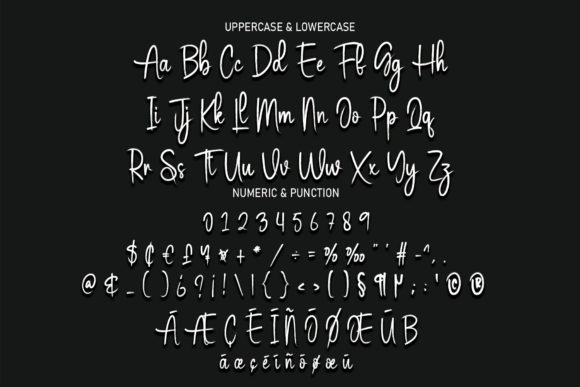 UPPERCASE & LOWERCASE
Aa Bb Cc Dd Ee Ff Gg Hh
Ii Jj Kk Ll Mm Nn Oo Pp Qq
Rr Ss Tt Uu Vv Ww Xx Yy Zz
NUMERIC & PUNCTION
0 1 2 3 4 5 6 7 8 9
$ ₵ € £ ¥ ¤ + * / ÷ = % ‰ " ' # - ^ , .
@ & _ ( ) ¿ ? ¡ ! \ | { } < > ( ) § ¶ µ ; : ' © ®
Á Æ Ç É Í Ñ Ó Ø Æ Ú B
á æ ç é í ñ ó ø æ ú